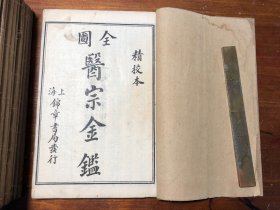 精校本
全圖
醫宗金鑑
上海錦章書局發行